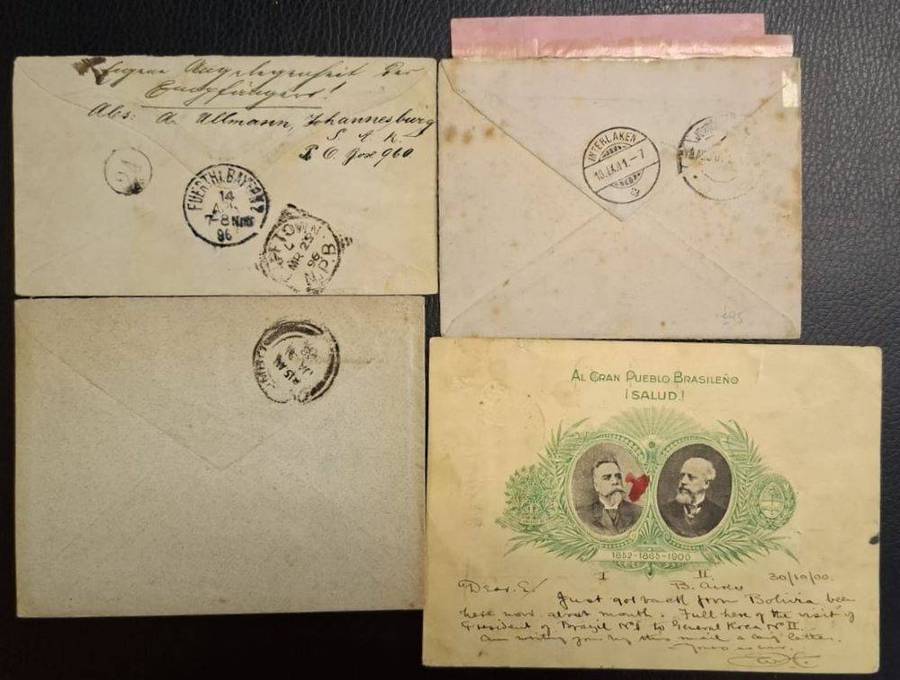 Eigene Angelegenheit des
Empfängers!
Abs: A. Ullmann, Johannesburg
P. O. Box 960.
FUERTH I. BAYERN 2
14
7-8 Nm
96
MR 25
96
INTERLAKEN
10.IX.01.-7
8 15 AM
JA
495
AL GRAN PUEBLO BRASILEÑO
¡SALUD!
1852-1865-1900
I II 30/10/00.
B. Aires
Dear E.
Just got back from Bolivia been
here now about month. Full here of the visit of
President of Brazil Nº I to General Roca Nº II.
Am writing you by this mail a big letter.
Yours as ever